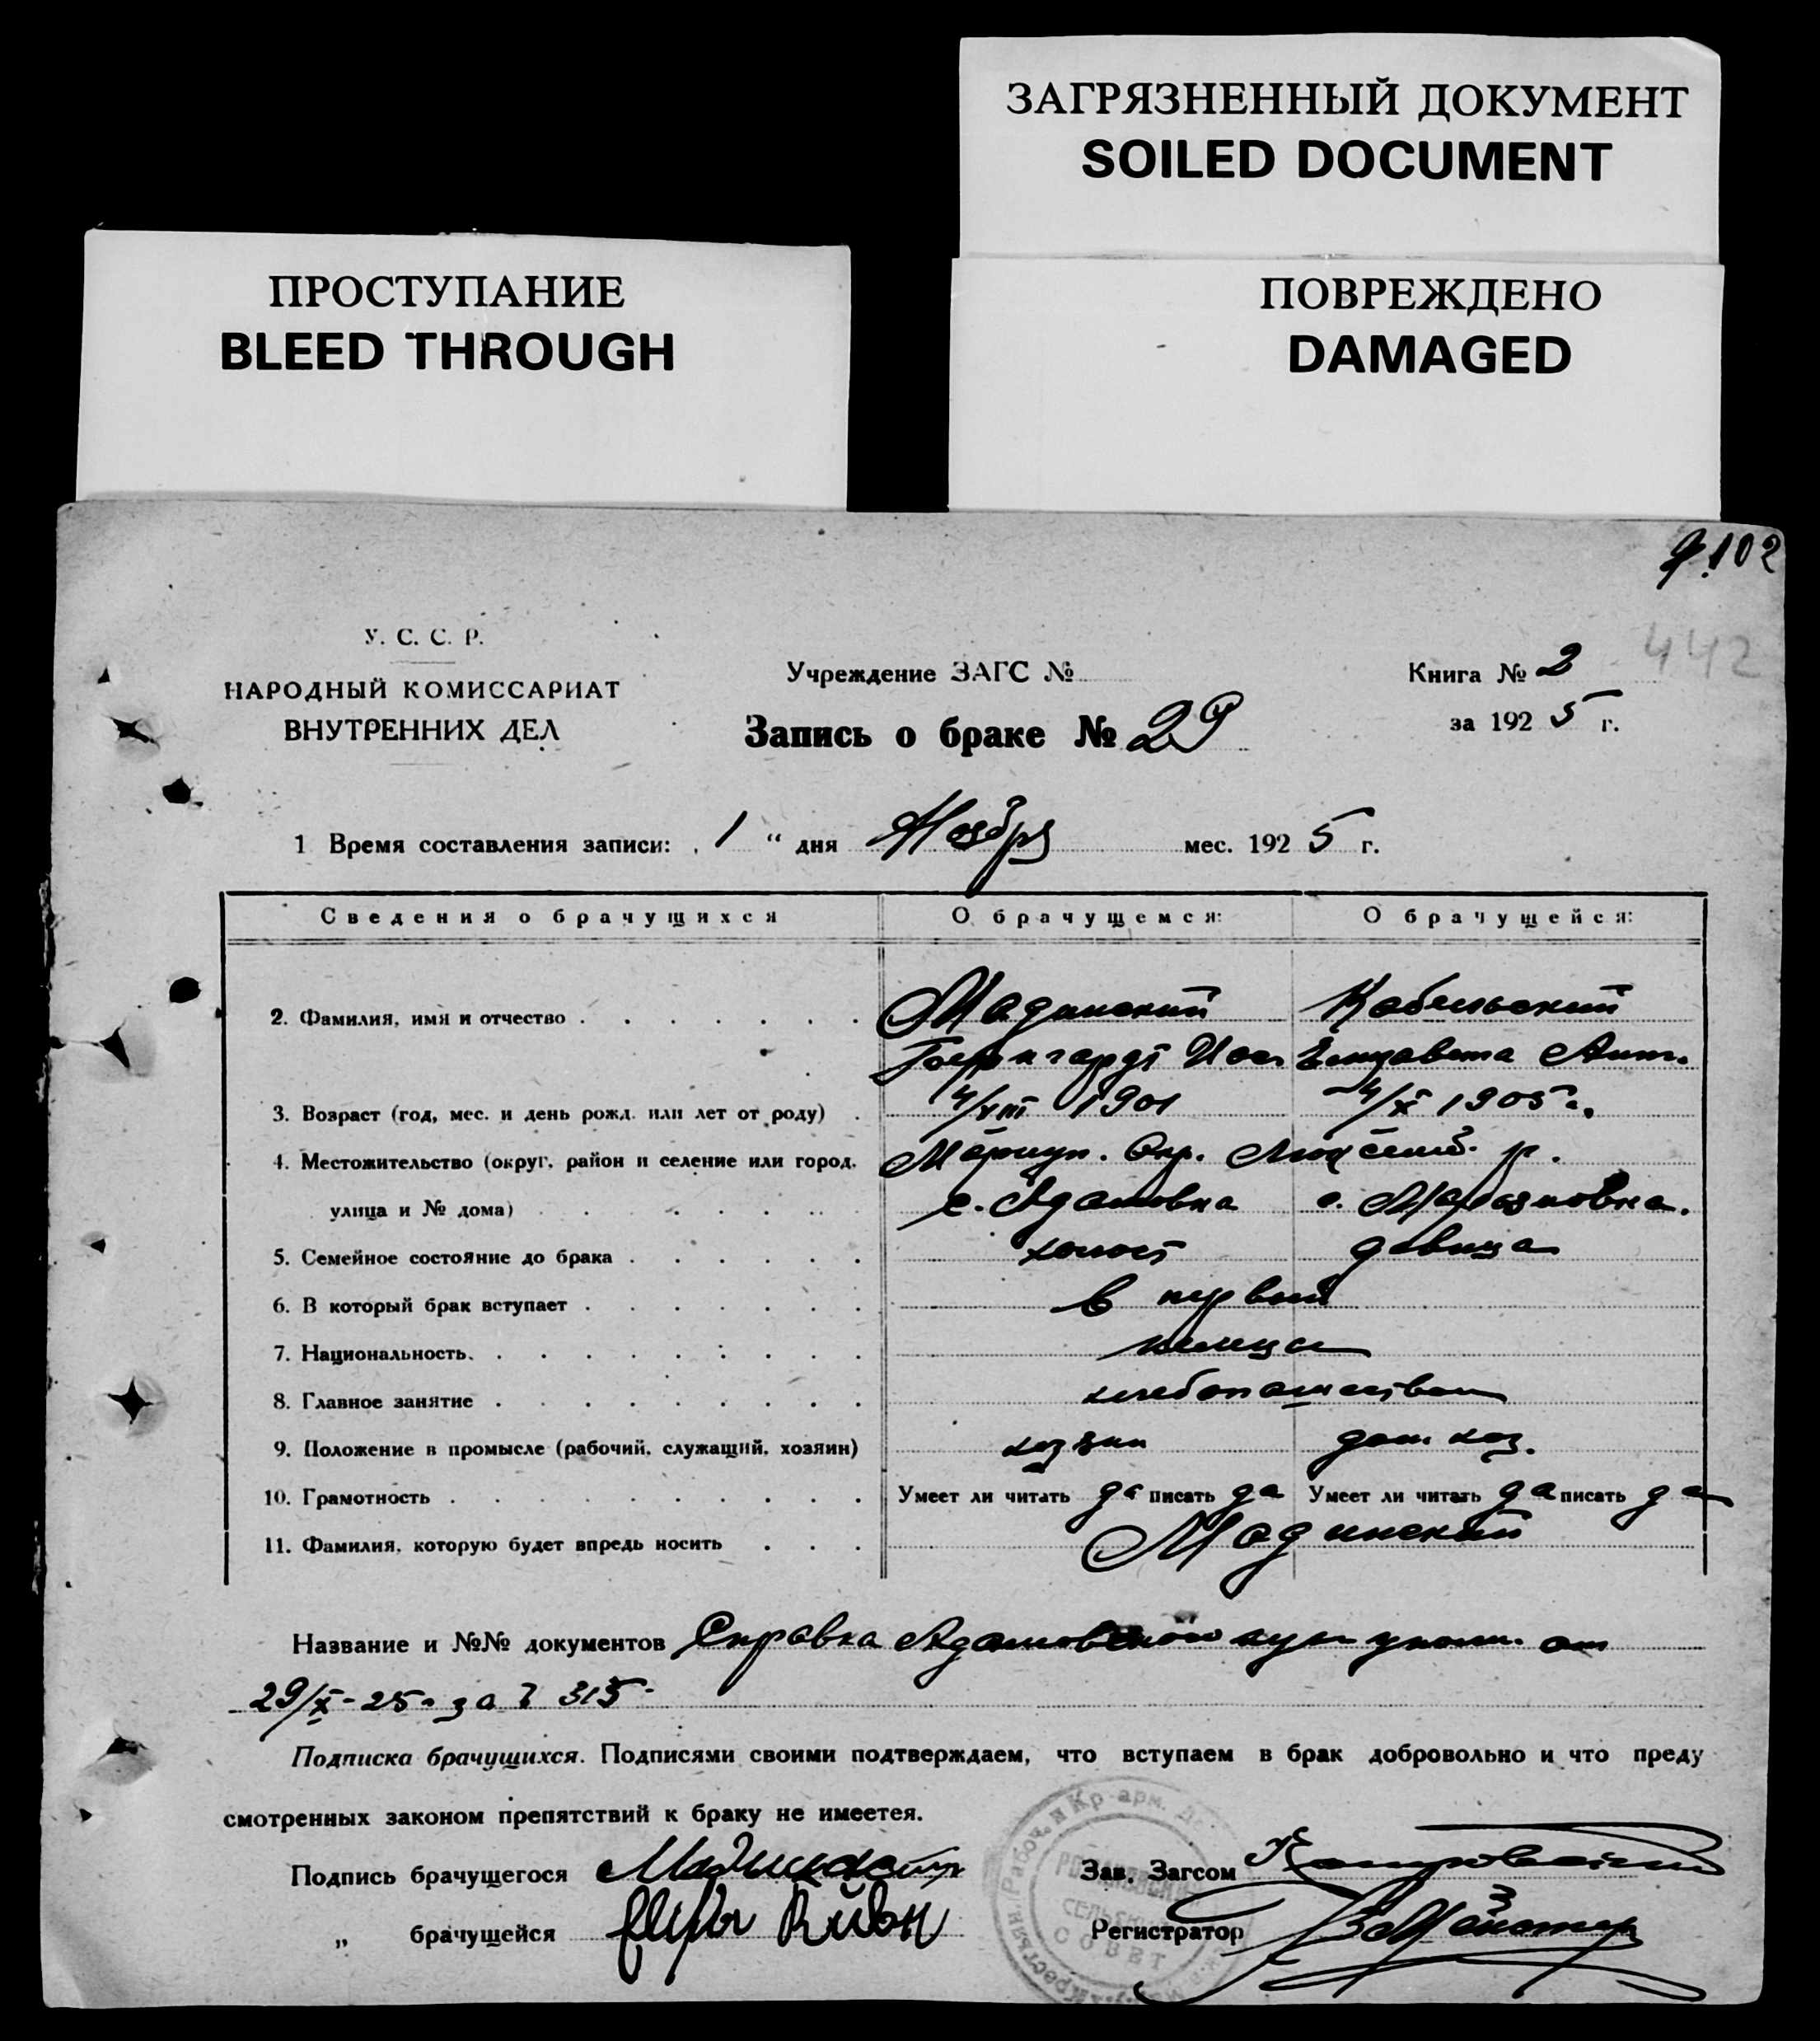 ЗАГРЯЗНЕННЫЙ ДОКУМЕНТ
SOILED DOCUMENT
ПРОСТУПАНИЕ
BLEED THROUGH
ПОВРЕЖДЕНО
DAMAGED
102
442
У. С. С. Р.
НАРОДНЫЙ КОМИССАРИАТ
ВНУТРЕННИХ ДЕЛ
Учреждение ЗАГС №
Книга № 2
Запись о браке № 29
за 1925 г.
1 Время составления записи: 1 " дня Ноября мес. 1925 г.
Сведения о брачущихся О брачущемся: О брачущейся:
2. Фамилия, имя и отчество Мадинский Кобельский
Елизавета Ант.
3. Возраст (год, мес. и день рожд. или лет от роду) 4/VIII 1901 /X 1905 г.
4. Местожительство (округ, район и селение или город, Мариуп. Окр. р.
улица и № дома) с. Адамовка с.
5. Семейное состояние до брака холост девица
6. В который брак вступает в первый
7. Национальность немцы
8. Главное занятие хлебопашество
9. Положение в промысле (рабочий, служащий, хозяин) хозяин дом. хоз.
10. Грамотность Умеет ли читать да писать да Умеет ли читать да писать да
11. Фамилия, которую будет впредь носить Мадинский
Название и №№ документов Справка Адамовской уполн. от
29/X-25 г. за № 315
Подписка брачущихся. Подписями своими подтверждаем, что вступаем в брак добровольно и что преду
смотренных законом препятствий к браку не имеетея.
Подпись брачущегося
Зав. Загсом
„ брачущейся
Регистратор
Рабоч. и Кр-арм. Де
СЕЛЬСК
СОВЕТ